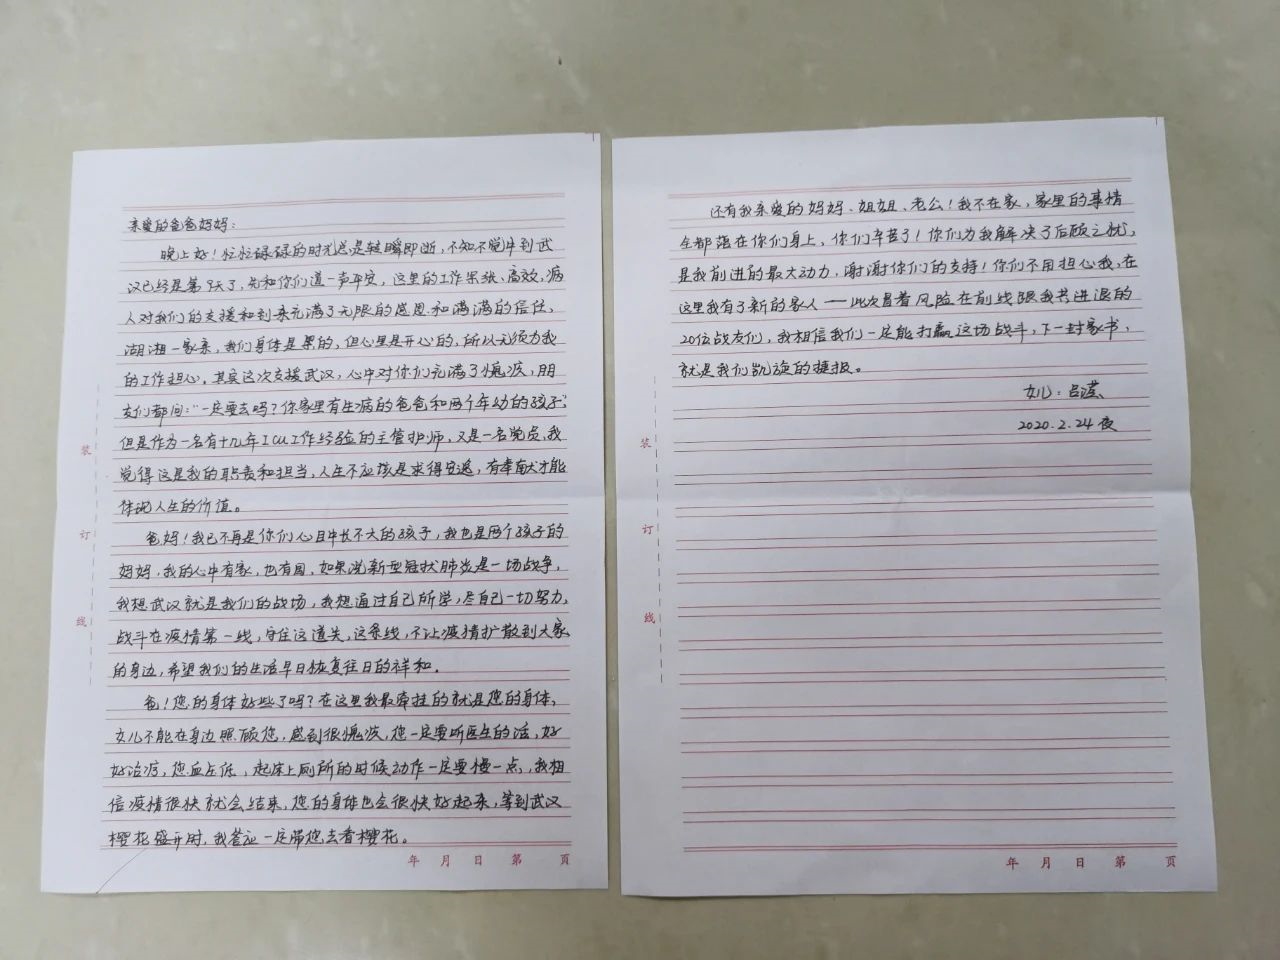 亲爱的爸爸妈妈：
晚上好！忙忙碌碌的时光总是转瞬即逝，不知不觉中到武
汉已经是第9天了，先和你们道一声平安，这里的工作紧张、高效，病
人对我们的支援和到来充满了无限的感恩和满满的信任，
湖湘一家亲，我们身体是累的，但心里是开心的，所以无须为我
的工作担心。其实这次支援武汉，心中对你们充满了愧疚，朋
友们都问："一定要去吗？你家里有生病的爸爸和两个年幼的孩子"，
但是作为一名有十九年ICU工作经验的主管护师，又是一名党员，我
觉得这是我的职责和担当，人生不应该是求得安逸，有奉献才能
体现人生的价值。
爸妈！我已不再是你们心目中长不大的孩子，我也是两个孩子的
妈妈，我的心中有家，也有国，如果说新型冠状肺炎是一场战争，
我想武汉就是我们的战场，我想通过自己所学，尽自己一切努力，
战斗在疫情第一线，守住这道关，这条线，不让疫情扩散到大家
的身边，希望我们的生活早日恢复往日的祥和。
爸！您的身体好些了吗？在这里我最牵挂的就是您的身体，
女儿不能在身边照顾您，感到很愧疚，您一定要听医生的话，好
好治病，您血压低，起床上厕所的时候动作一定要慢一点，我相
信疫情很快就会结束，您的身体也会很快好起来，等到武汉
樱花盛开时，我答应一定带您去看樱花。
年 月 日 第 页
装
订
线
还有我亲爱的妈妈、姐姐、老公！我不在家，家里的事情
全都落在你们身上，你们辛苦了！你们为我解决了后顾之忧，
是我前进的最大动力，谢谢你们的支持！你们不用担心我，在
这里我有了新的家人——此次冒着风险在前线跟我共进退的
20位战友们，我相信我们一定能打赢这场战斗，下一封家书，
就是我们凯旋的捷报。
女儿：吕滢
2020.2.24夜
装
订
线
年 月 日 第 页